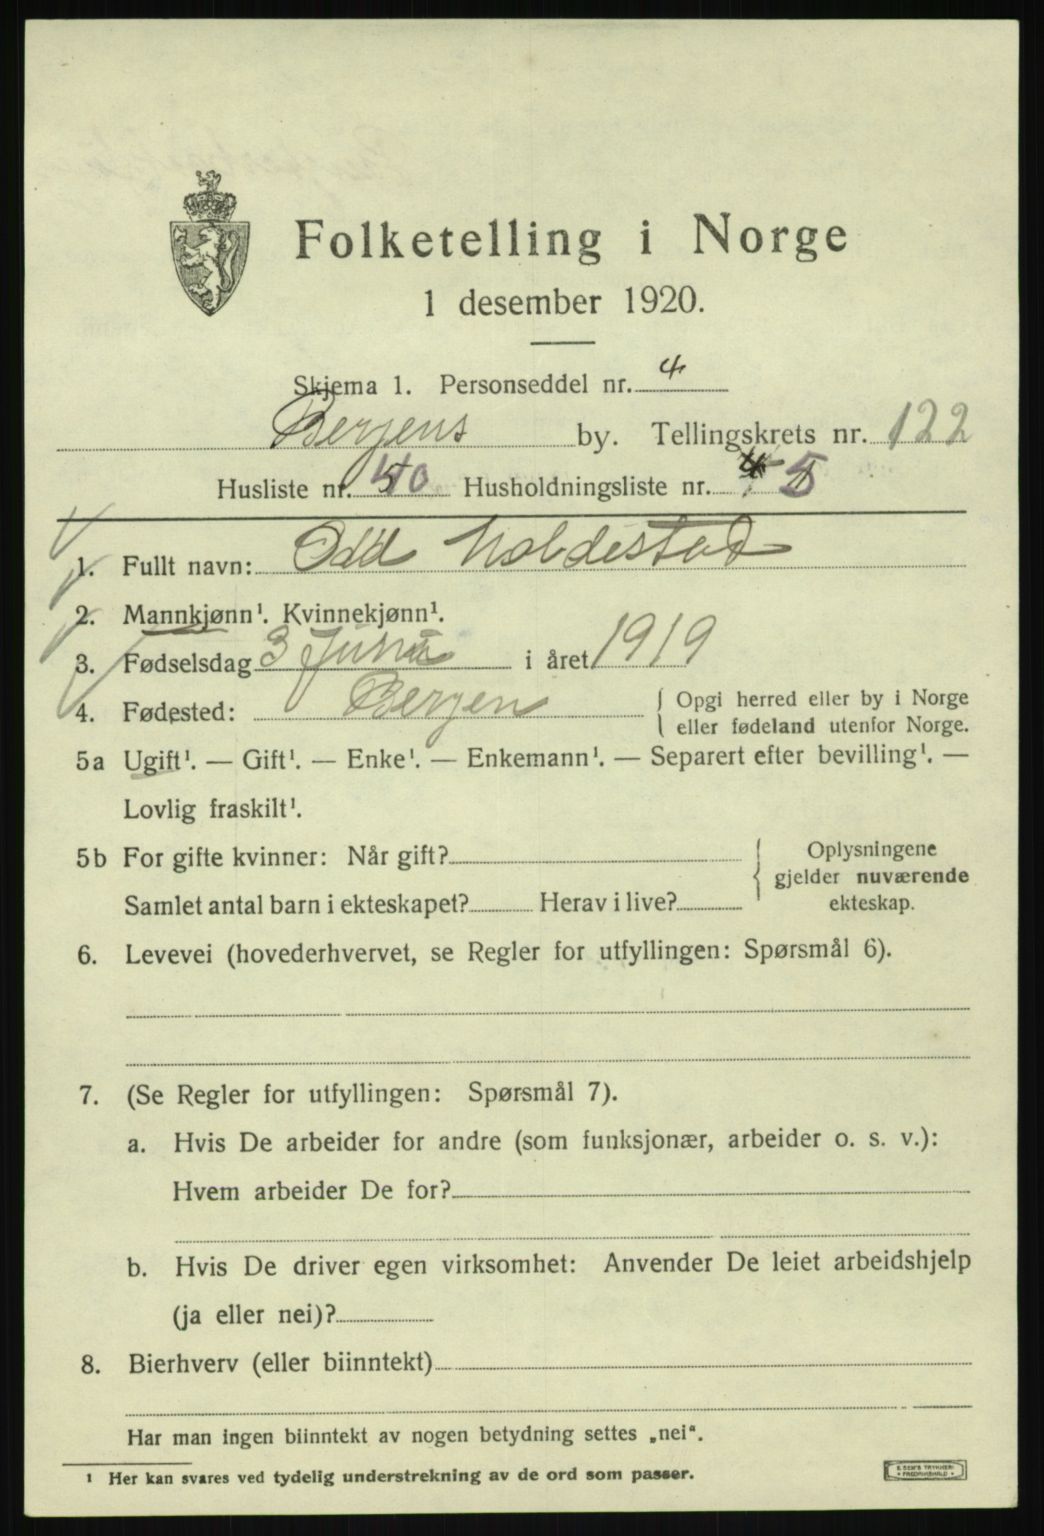 Folketelling i Norge
1 desember 1920.
Skjema 1. Personseddel nr. 4
Bergens by. Tellingskrets nr. 122
Husliste nr. 40 Husholdningsliste nr. 5
1. Fullt navn: Odd Moldestad
2. Mannkjønn¹. Kvinnekjønn¹.
3. Fødselsdag 3 Juni i året 1919
4. Fødested: Bergen { Opgi herred eller by i Norge
eller fødeland utenfor Norge.
5a Ugift¹. — Gift¹. — Enke¹. — Enkemann¹. — Separert efter bevilling¹. —
Lovlig fraskilt¹.
5b For gifte kvinner: Når gift? { Oplysningene
gjelder nuværende
Samlet antal barn i ekteskapet? Herav i live? ekteskap.
6. Levevei (hovederhvervet, se Regler for utfyllingen: Spørsmål 6).
7. (Se Regler for utfyllingen: Spørsmål 7).
a. Hvis De arbeider for andre (som funksjonær, arbeider o. s. v.):
Hvem arbeider De for?
b. Hvis De driver egen virksomhet: Anvender De leiet arbeidshjelp
(ja eller nei)?
8. Bierhverv (eller biinntekt)
Har man ingen biinntekt av nogen betydning settes „nei".
¹ Her kan svares ved tydelig understrekning av de ord som passer.